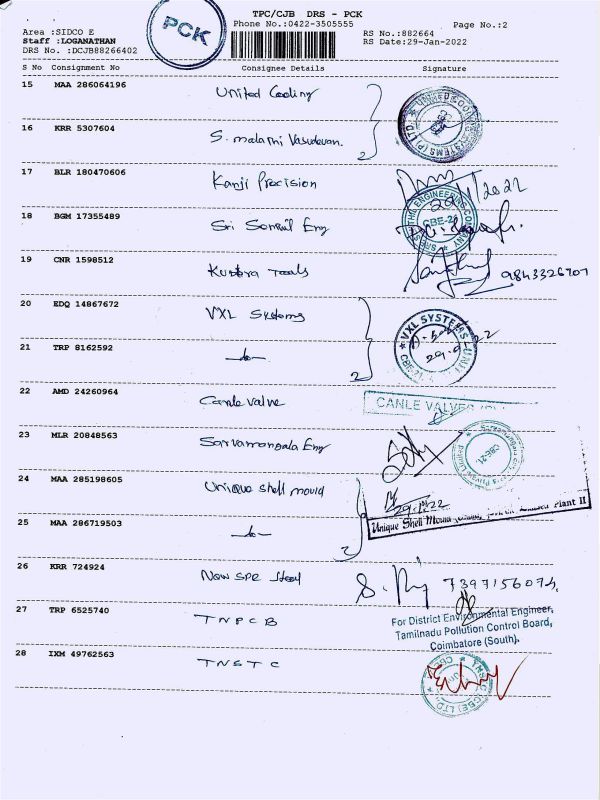 TPC/CJB DRS - PCK
Phone No.:0422-3505555
Page No.:2
PCK
Area :SIDCO E
Staff :LOGANATHAN
DRS No. :DCJB88266402
RS No.:882664
RS Date:29-Jan-2022
S No Consignment No Consignee Details Signature
15 MAA 286064196 United Cooling
16 KRR 5307604 S. malathi Vasudevan. 2
17 BLR 180470606 Kanji Precision
18 BGM 17355489 Sri Eng
CBE-21
19 CNR 1598512 Kubbra Tools 9843326707
20 EDQ 14867672 VXL Systems
VXL SYSTEMS
21 TRP 8162592 -do- 2
22 AMD 24260964 Canle valve
CANLE VALVES
23 MLR 20848563 Sarvamangala Eng
CBE-21
24 MAA 285198605 Unique Shell mould
Unique Shell Plant II
25 MAA 286719503 -do- 2
26 KRR 724924 New SPR Steel
27 TRP 6525740 TNPCB
For District Environmental Engineer,
Tamilnadu Pollution Control Board,
Coimbatore (South).
28 IXM 49762563 TNSTC